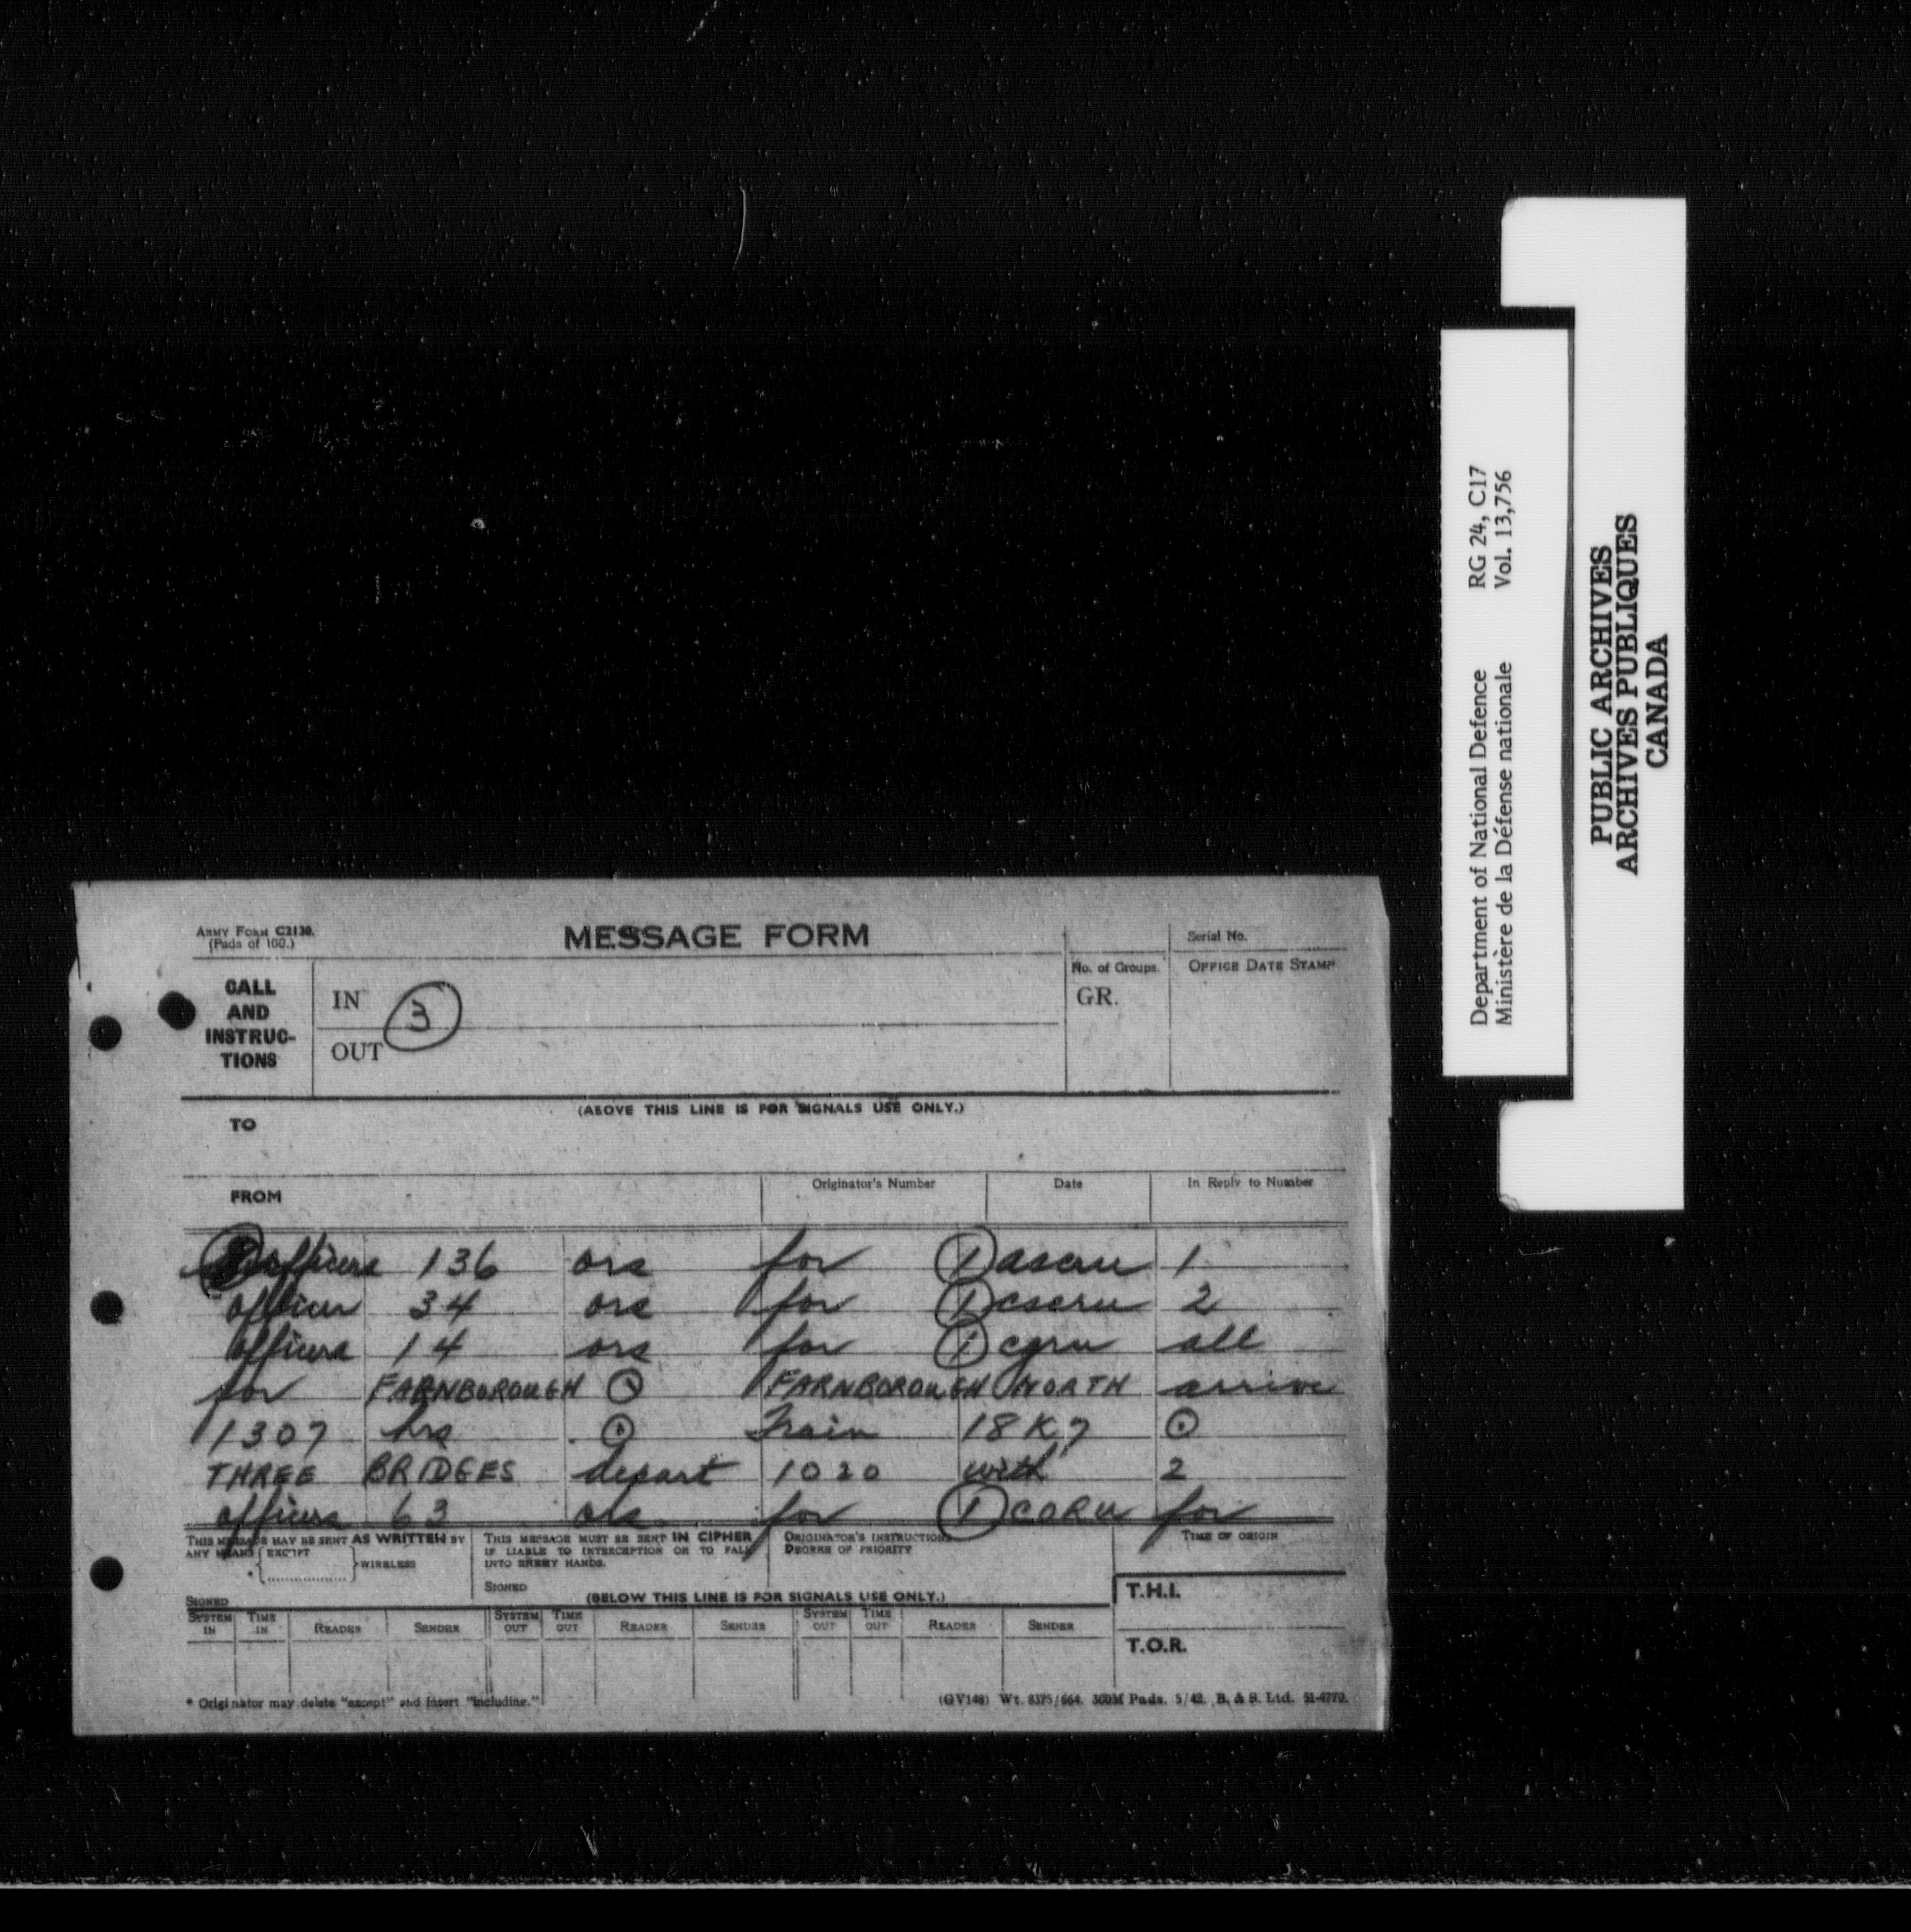 ARMY FORM C2130.
(Pads of 100.)
MESSAGE FORM
Serial No.
CALL AND INSTRUC-TIONS
IN
3
OUT
No. of Groups.
GR.
OFFICE DATE STAMP
(ABOVE THIS LINE IS FOR SIGNALS USE ONLY.)
TO
FROM
Originator's Number
Date
In Reply to Number
officers 136 ors for 1 ascru 1
officer 34 ors for 1 cscru 2
officers 14 ors for 1 cgru all
for FARNBOROUGH FARNBOROUGH NORTH arrive
1307 hrs Train 18 K 7
THREE BRIDGES depart 1020 with 2
officers 63 ors for 1 CARU for
THIS MESSAGE MAY BE SENT AS WRITTEN BY
ANY MEANS EXCEPT
* WIRELESS
SIGNED
THIS MESSAGE MUST BE SENT IN CIPHER
IF LIABLE TO INTERCEPTION OR TO FALL
INTO ENEMY HANDS.
SIGNED
ORIGINATOR'S INSTRUCTIONS
DEGREE OF PRIORITY
TIME OF ORIGIN
(BELOW THIS LINE IS FOR SIGNALS USE ONLY.)
T.H.I.
SYSTEM IN TIME IN READER SENDER SYSTEM OUT TIME OUT READER SENDER SYSTEM OUT TIME OUT READER SENDER
T.O.R.
* Originator may delete "except" and insert "including."
(GV148) Wt. 8375/664. 300M Pads. 5/42. B. & S. Ltd. 51-4770.
Department of National Defence RG 24, C17
Ministère de la Défense nationale Vol. 13,756
PUBLIC ARCHIVES
ARCHIVES PUBLIQUES
CANADA